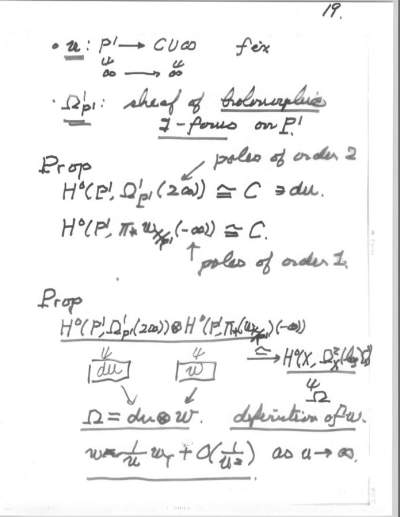 19.
• u : P¹ → C∪∞ fix
∞ → ∞
• Ω¹_P¹ : sheaf of holomorphic
1-forms on P¹.
poles of order 2
Prop
H⁰(P¹, Ω¹_P¹(2∞)) ≅ C ∋ du.
H⁰(P¹, π_* ω_X/P¹(-∞)) ≅ C.
poles of order 1.
Prop
H⁰(P¹, Ω¹_P¹(2∞)) ⊗ H⁰(P¹, π_*(ω_X/P¹)(-∞))
du ω ≅→ H⁰(X, Ω²_X
Ω
Ω = du ⊗ ω. definition of ω.
ω = 1/u ω_T + O(1/u²) as u → ∞.